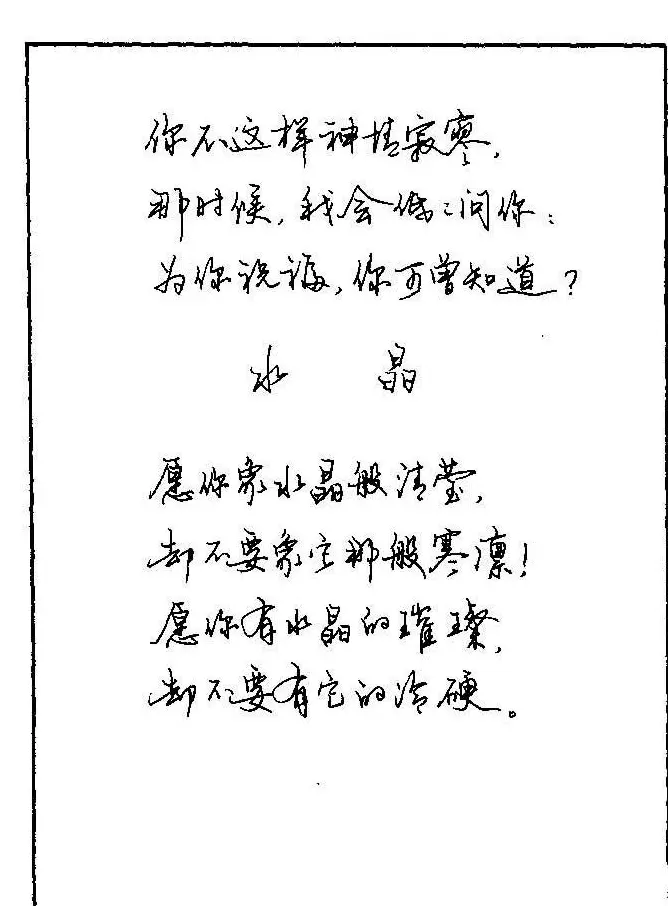 你不这样神情寂寥，
那时候，我会低々问你：
为你祝祷，你可曾知道？
水晶
愿你象水晶般清莹，
却不要象它那般寒凛！
愿你有水晶的璀璨，
却不要有它的冷硬。